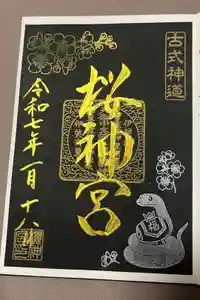 古式神道
桜神宮
令和七年一月十八日
福